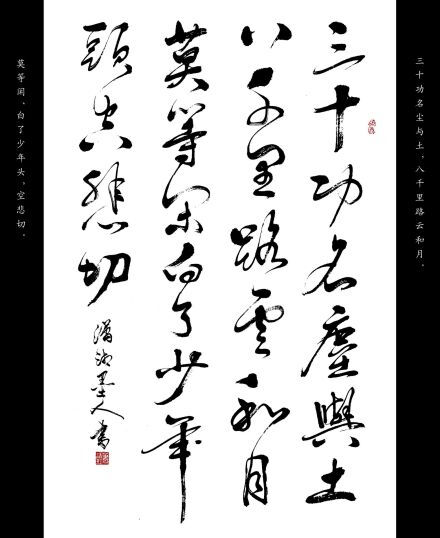 三十功名尘与土，八千里路云和月。
三十功名塵與土
八千里路雲和月
莫等閑白了少年
頭空悲切
瀟湘墨人書
莫等闲、白了少年头，空悲切。